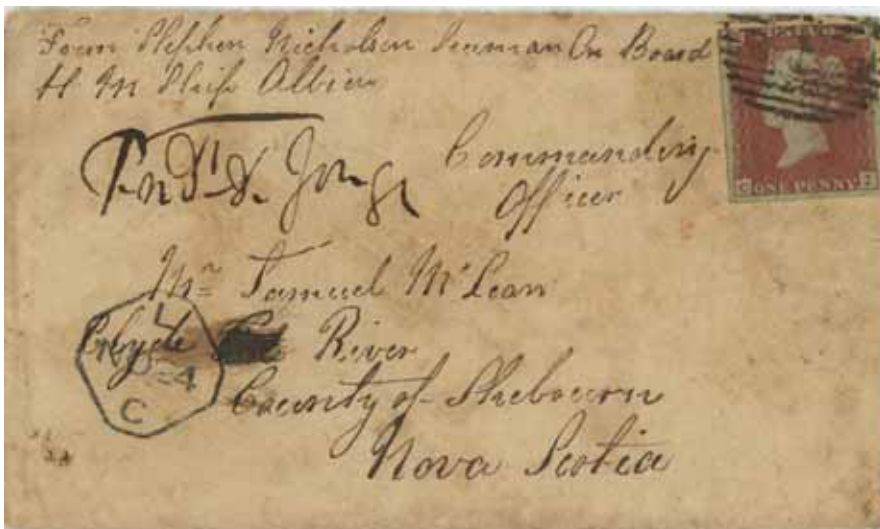 From Stephen Nicholson Seaman On Board
H M Ship Albion
Commanding
Officer
Mr Samuel McLean
Clyde River
County of Shebourn
Nova Scotia
C ONE PENNY
4
C